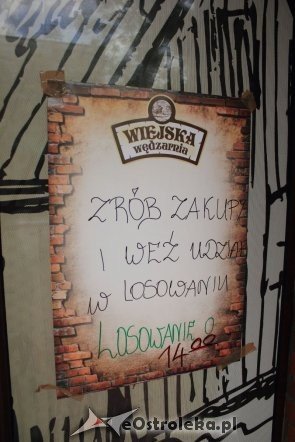 WIEJSKA
wędzarnia
ZRÓB ZAKUPY
I WEŹ UDZIAŁ
W LOSOWANIU
LOSOWANIE O
14.00
eOstroleka.pl